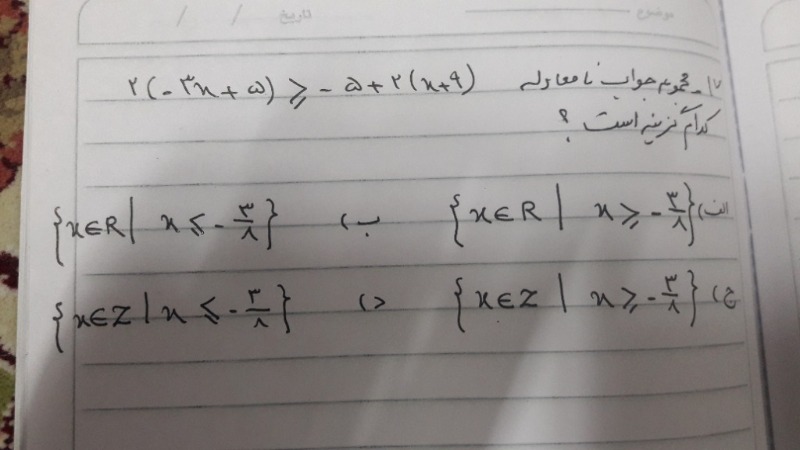 موضوع تاریخ / /
۱۷ـ مجموعه جواب نامعادله ۲(-۳x+۵) ⩾ -۵+۲(x+۹)
کدام گزینه است ؟
الف) {x∈R | x ⩾ -۳/۸} ب) {x∈R | x ⩽ -۳/۸}
ج) {x∈Z | x ⩾ -۳/۸} د) {x∈Z | x ⩽ -۳/۸}